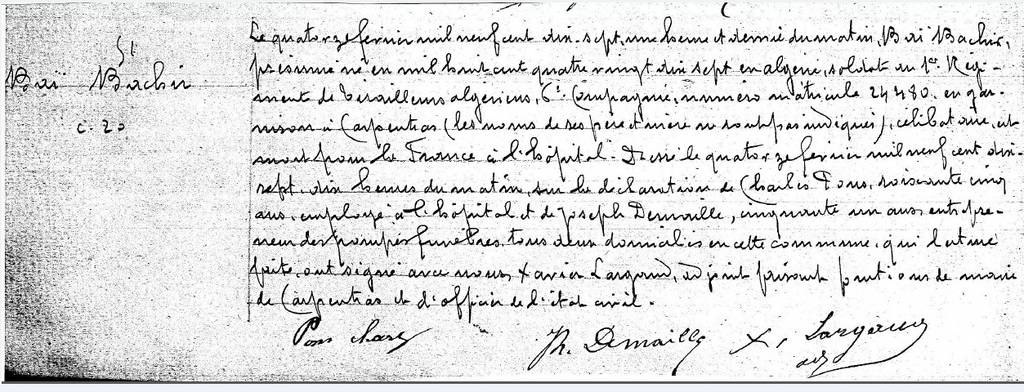 51
Baï Bachir
c. 20
Le quatorze fevrier mil neuf cent dix-sept, une heure et demie du matin, Bai Bachir,
présumé né en mil huit cent quatre vingt dix sept en algérie, soldat au 1er Régi-
ment de tirailleurs algériens, 6e Compagnie, numéro matricule 24480. en gar-
nison à Carpentras (les noms de ses père et mère ne sont pas indiqués), célibataire, est
mort pour la France à l'hôpital. Dressé le quatorze fevrier mil neuf cent dix-
sept, dix heures du matin, sur la déclaration de Charles Pons, soixante cinq
ans, employé à l'hôpital et de Joseph Demaille, cinquante un ans, entrepre-
neur des pompes funèbres, tous deux domiciliés en cette commune, qui lecture
faite, ont signé avec nous, Xavier Largaud, adjoint faisant fonctions de maire
de Carpentras et d'officier de l'état civil.
Pons Charles
Jh. Demaille
X. Largaud
adj